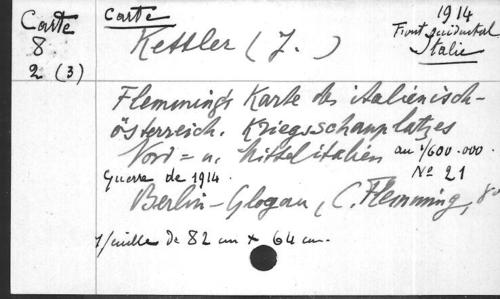 Carte
8
2 (3)
Carte
1914
Front occidental
Italie
Kettler (J. )
Flemming's Karte des italienisch-
österreich. Kriegsschauplatzes
Nord = u. Mittelitalien au 1/600.000.
Guerre de 1914.
No 21
Berlin-Glogau, C. Flemming, 8o
1 feuille de 82 cm x 64 cm.